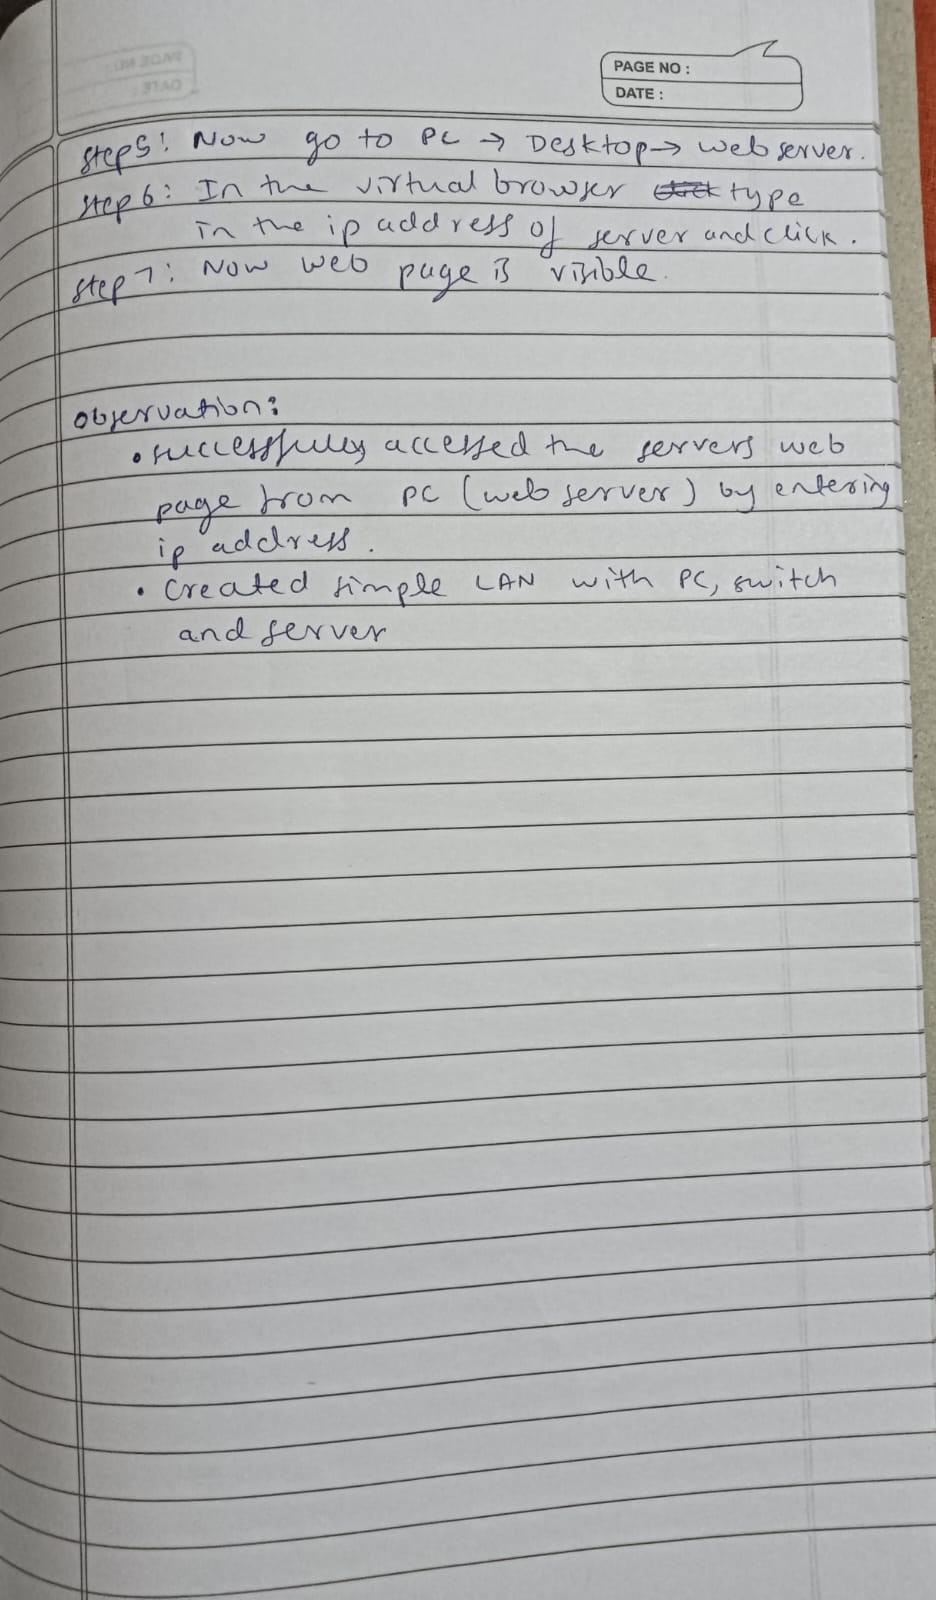 PAGE NO :
DATE :
Step5: Now go to PC → Desktop → web server.
Step 6: In the virtual browser type
in the ip address of server and click.
Step 7: Now web page is visible.
observation:
• successfully accessed the servers web
page from PC (web server) by entering
ip address.
• Created simple LAN with PC, switch
and server